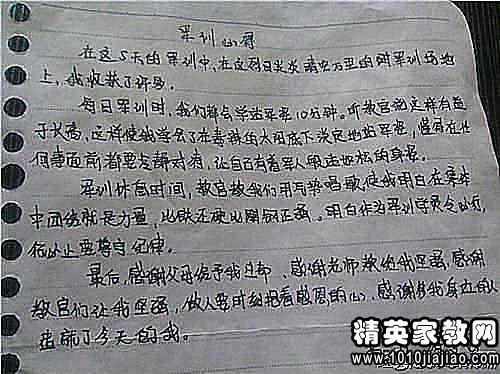 军训心得
在这5天的军训中,在这烈日炎炎晴空万里的附军训场地
上,我收获了许多。
每日军训时,我们都会学站军姿10分钟。听教官说这样有益
于长高,这样使我学会了在毒辣的太阳底下淡定地站军姿,懂得在任
何事面前都要冷静对待,让自己有着军人般挺拔的身姿。
军训休息时间,教官教我们用气势唱歌使我明白在集体
中团结就是力量,比铁还硬比刚还强。明白作为军训学员令必行,
行必止要尊守纪律。
最后,感谢父母给予我这部、感谢老师教给我,感谢
教官们让我坚强,做人要时刻抱着感恩的心,感谢我身边的人
造就了今天的我。
精英家教网
www.1010jiajiao.com